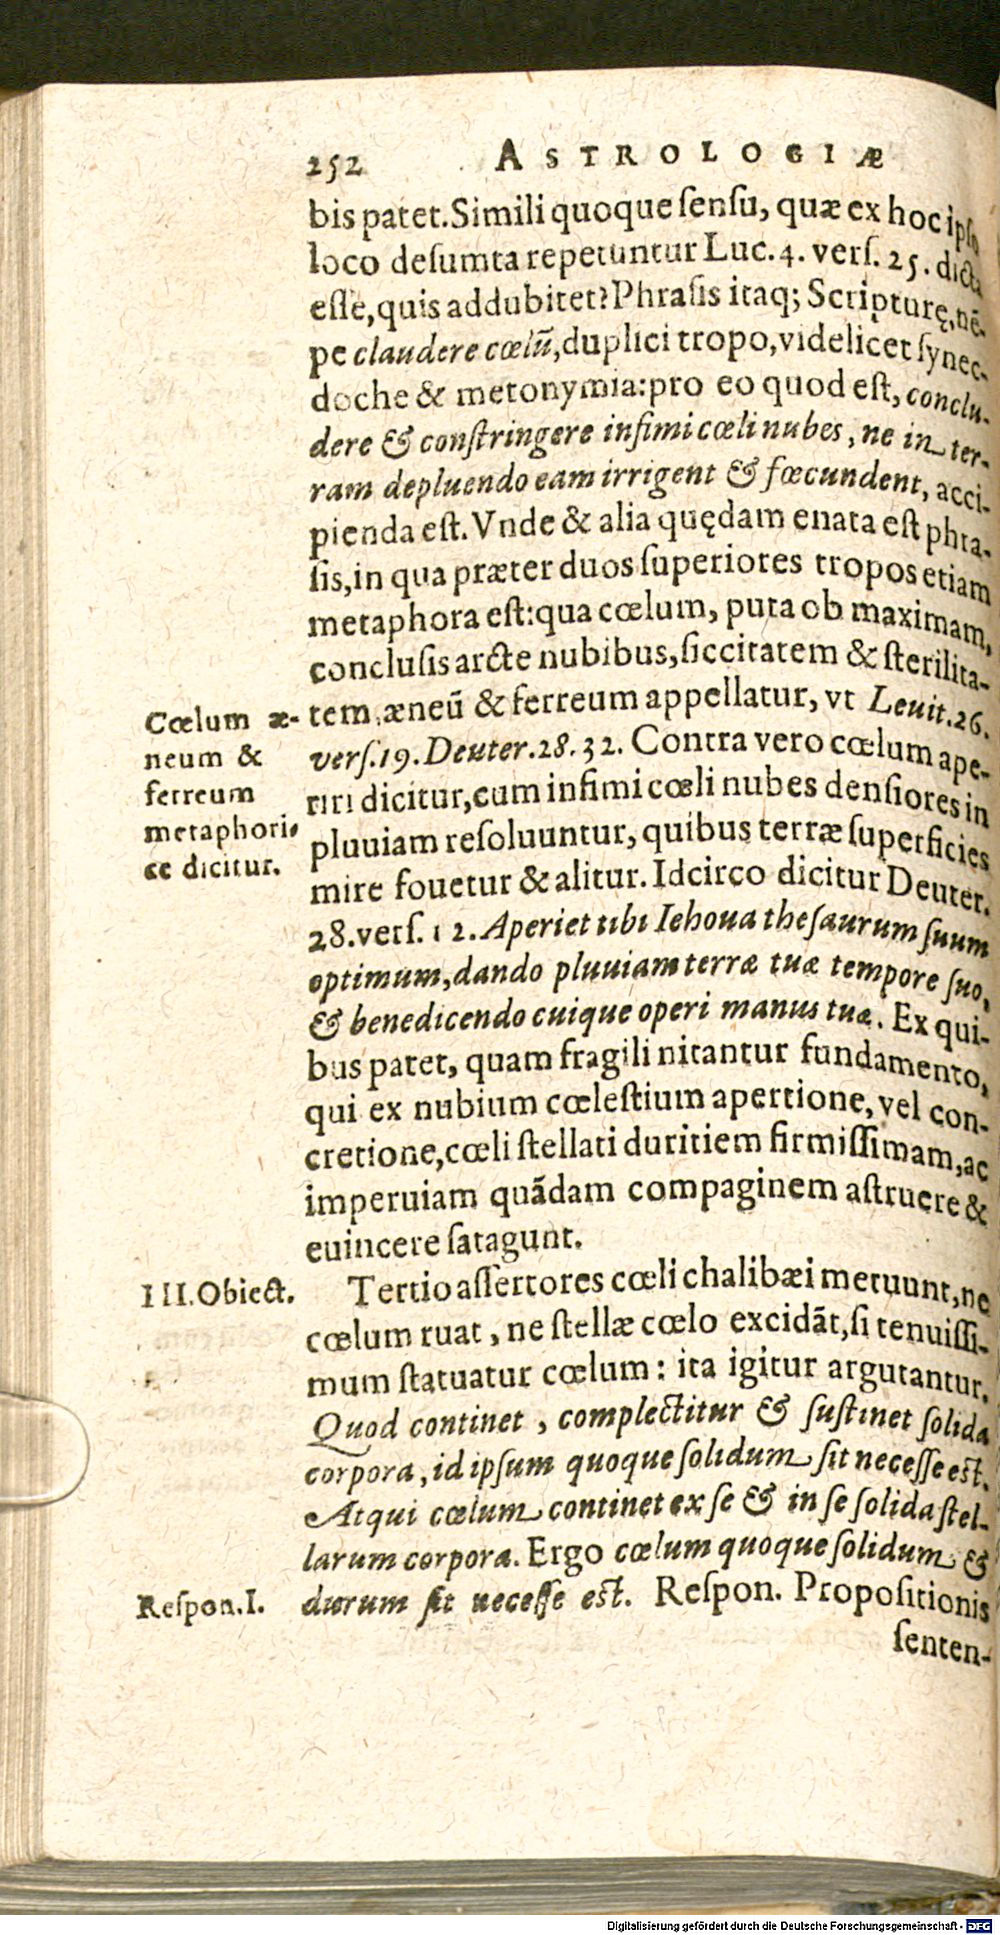 252 ASTROLOGIÆ
bis patet. Simili quoque ſenſu, quæ ex hoc ipſo
loco deſumta repetuntur Luc. 4. verſ. 25. dicta
eſſe, quis addubitet? Phraſis itaq; Scripturę, nē-
pe claudere cœlū, duplici tropo, videlicet ſynec-
doche & metonymia: pro eo quod eſt, conclu-
dere & conſtringere infimi cœli nubes, ne in ter-
ram depluendo eam irrigent & fœcundent, acci-
pienda eſt. Vnde & alia quędam enata eſt phra-
ſis, in qua præter duos ſuperiores tropos etiam
metaphora eſt: qua cœlum, puta ob maximam,
concluſis arcte nubibus, ſiccitatem & ſterilita-
tem, æneū & ferreum appellatur, vt Leuit. 26.
verſ. 19. Deuter. 28. 32. Contra vero cœlum ape-
riri dicitur, cum infimi cœli nubes denſiores in
pluuiam reſoluuntur, quibus terræ ſuperficies
mire fouetur & alitur. Idcirco dicitur Deuter.
28. verſ. 12. Aperiet tibi Iehoua theſaurum ſuum
optimum, dando pluuiam terræ tuæ tempore ſuo,
& benedicendo cuique operi manus tuæ. Ex qui-
bus patet, quam fragili nitantur fundamento,
qui ex nubium cœleſtium apertione, vel con-
cretione, cœli ſtellati duritiem firmiſſimam, ac
imperuiam quādam compaginem aſtruere &
euincere ſatagunt.
Tertio aſſertores cœli chalibæi metuunt, ne
cœlum ruat, ne ſtellæ cœlo excidāt, ſi tenuiſſi-
mum ſtatuatur cœlum: ita igitur argutantur.
Quod continet, complectitur & ſuſtinet ſolida
corpora, id ipſum quoque ſolidum ſit neceſſe eſt.
Atqui cœlum continet ex ſe & in ſe ſolida ſtel-
larum corpora. Ergo cœlum quoque ſolidum &
durum ſit neceſſe eſt. Reſpon. Propoſitionis
ſenten-
Cœlum æ-
neum &
ferreum
metaphori-
ce dicitur.
III. Obiect.
Reſpon. I.
Digitalisierung gefördert durch die Deutsche Forschungsgemeinschaft - DFG